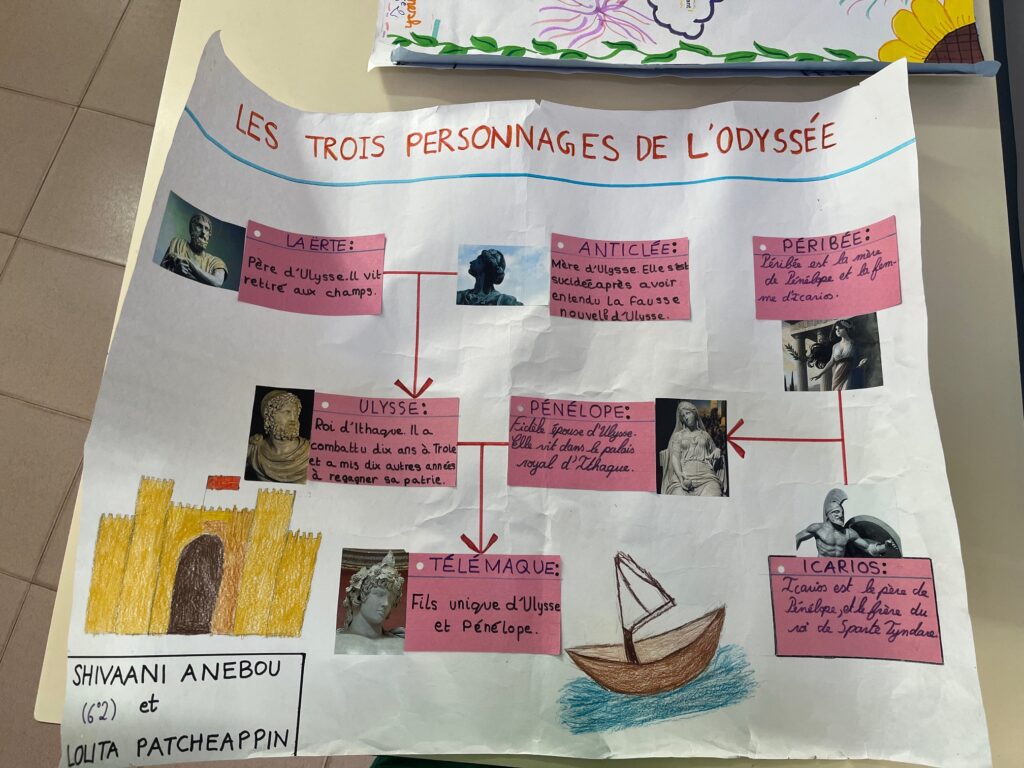 LES TROIS PERSONNAGES DE L'ODYSSÉE
LAËRTE:
Père d'Ulysse. Il vit
retiré aux champs.
ANTICLÉE:
Mère d'Ulysse. Elle s'est
sucidée après avoir
entendu la fausse
nouvelle d'Ulysse.
PÉRIBÉE:
Péribée est la mère
de Pénélope et la fem-
me d'Icarios.
ULYSSE:
Roi d'Ithaque. Il a
combattu dix ans à Troie
et a mis dix autres années
à regagner sa patrie.
PÉNÉLOPE:
Fidèle épouse d'Ulysse.
Elle vit dans le palais
royal d'Ithaque.
TÉLÉMAQUE:
Fils unique d'Ulysse
et Pénélope.
ICARIOS:
Icarios est le père de
Pénélope, et le frère du
roi de Sparte Tyndare.
SHIVAANI ANEBOU
(6°2) et
LOLITA PATCHEAPPIN